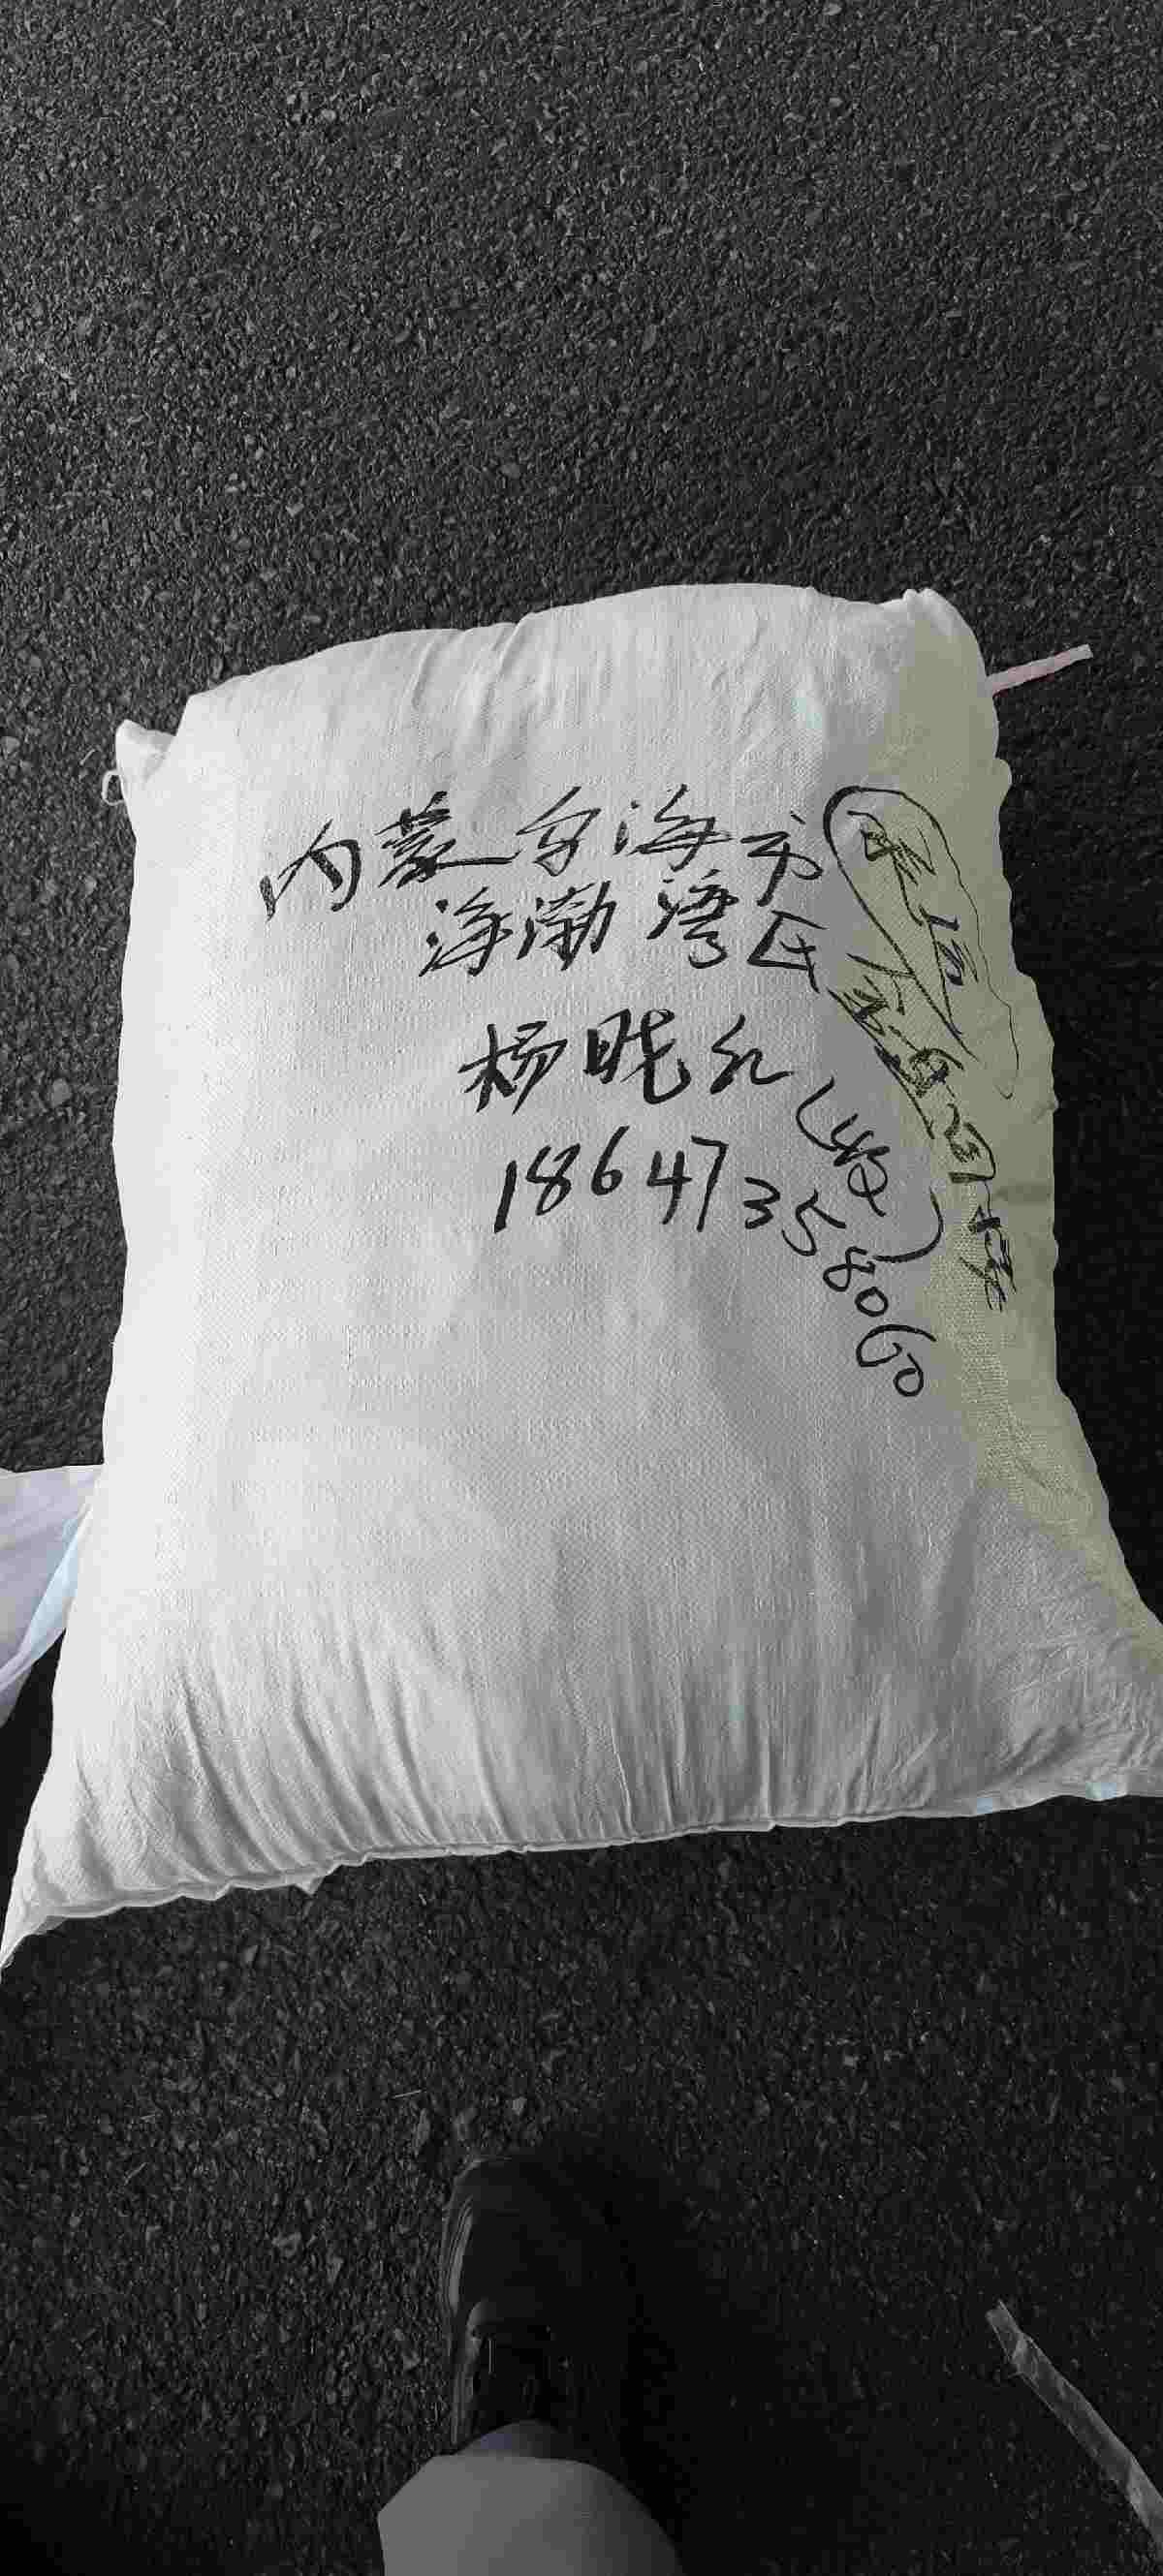 内蒙乌海市
海渤湾区
杨晓红(收)
18647358060